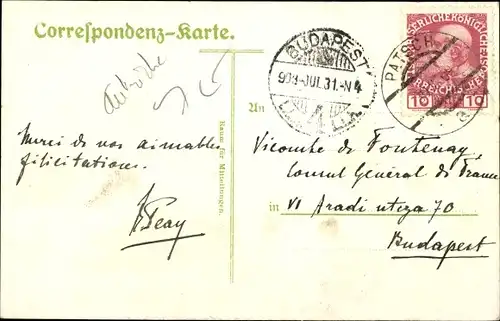 Correspondenz-Karte.
BUDAPEST
908-JUL.31.-N4
4
PATSCH
KAISERLICHEKÖNIGLICHE
ÖSTERREICHISCHE
10 10
Autriche
An
Raum für Mitteilungen.
Merci de vos aimables
félicitations.
Vicomte de Fontenay,
Consul Général de France
in VI Aradi utcza 70
Budapest